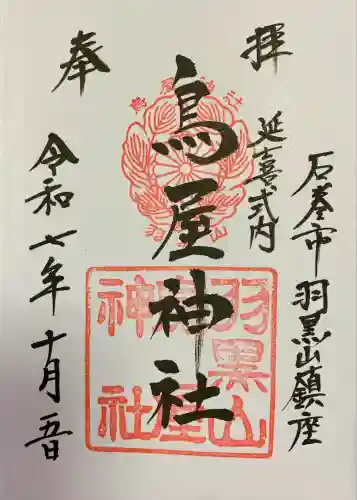 奉拝
石巻市羽黒山鎮座
延喜式内
鳥屋神社
令和七年十月五日
鳥屋神社
羽黒山
鳥屋
神社